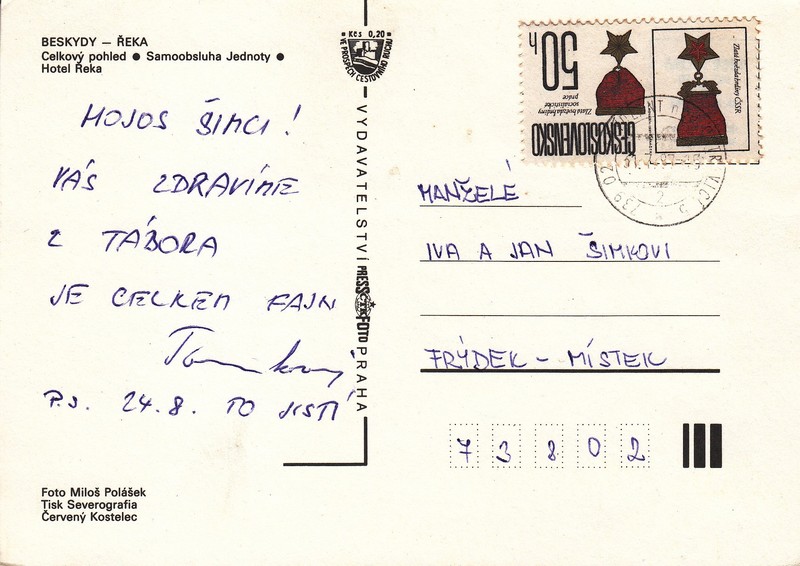 BESKYDY – ŘEKA
Celkový pohled ● Samoobsluha Jednoty ●
Hotel Řeka
HOJOS ŠIMCI!
VÁS ZDRAVÍME
Z TÁBORA
JE CELKEM FAJN
P.S. 24.8. TO JISTÍ
Foto Miloš Polášek
Tisk Severografia
Červený Kostelec
Kčs 0,20
VE PROSPĚCH CESTOVNÍHO RUCHU
VYDAVATELSTVÍ PRESSFOTO PRAHA
ČESKOSLOVENSKO
50 h
Zlatá hvězda hrdiny
socialistické
práce
Zlatá hvězda hrdiny ČSSR
MANŽELÉ
IVA A JAN ŠIMKOVI
FRÝDEK – MÍSTEK
73802